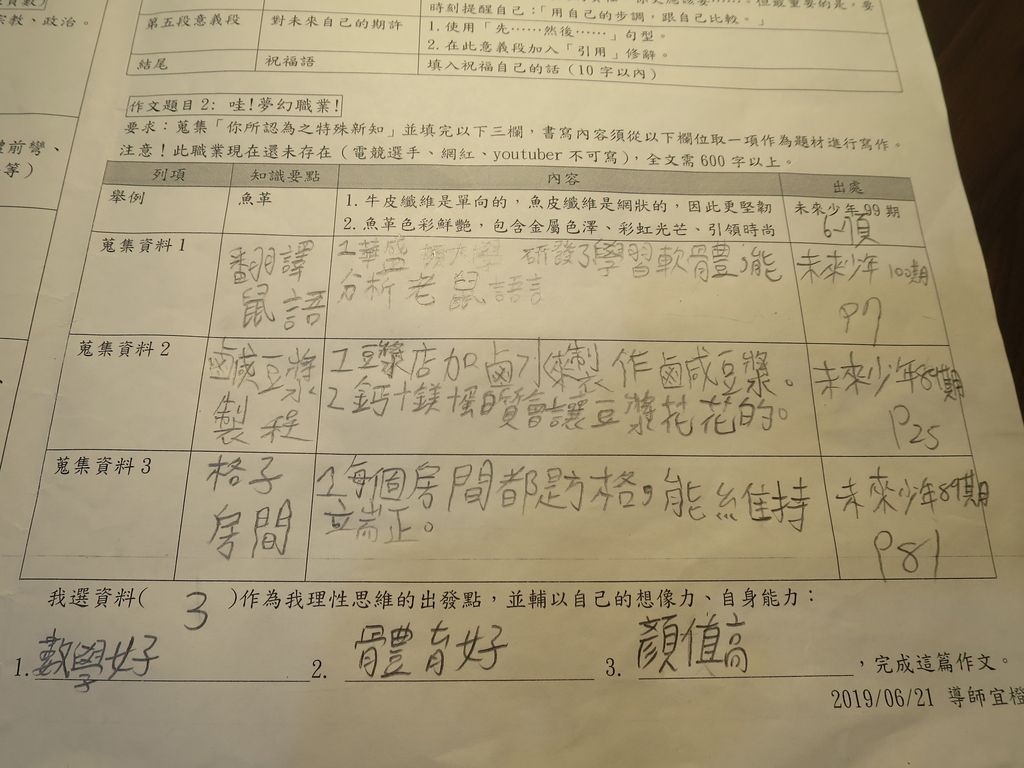 宗教、政治。
時刻提醒自己:「用自己的步調,跟自己比較。」
第五段意義段 對未來自己的期許 1. 使用「先……然後……」句型。
2. 在此意義段加入「引用」修辭。
結尾 祝福語 填入祝福自己的話(10字以內)
作文題目2: 哇!夢幻職業!
要求:蒐集「你所認為之特殊新知」並填完以下三欄,書寫內容須從以下欄位取一項作為題材進行寫作。
注意!此職業現在還未存在(電競選手、網紅、youtuber 不可寫),全文需600字以上。
體前彎、
等)
列項 知識要點 內容 出處
舉例 魚革 1. 牛皮纖維是單向的,魚皮纖維是網狀的,因此更堅韌
2. 魚革色彩鮮艷,包含金屬色澤、彩虹光芒、引領時尚
未來少年 99 期
蒐集資料1 翻譯鼠語 1.華盛頓大學 研發了學習軟體,能
分析老鼠語言
未來少年 100期
P7
蒐集資料2 鹹豆漿製程 1.豆漿店加鹵水來製作鹹豆漿。
會讓豆漿花花的。
未來少年
P25
蒐集資料3 格子房間 1.每個房間都是方格,能維持
立端正。
未來少年
P81
我選資料( 3 )作為我理性思維的出發點,並輔以自己的想像力、自身能力:
1. 數學好 2. 體育好 3. 顏值高 ,完成這篇作文。
2019/06/21 導師宜橙